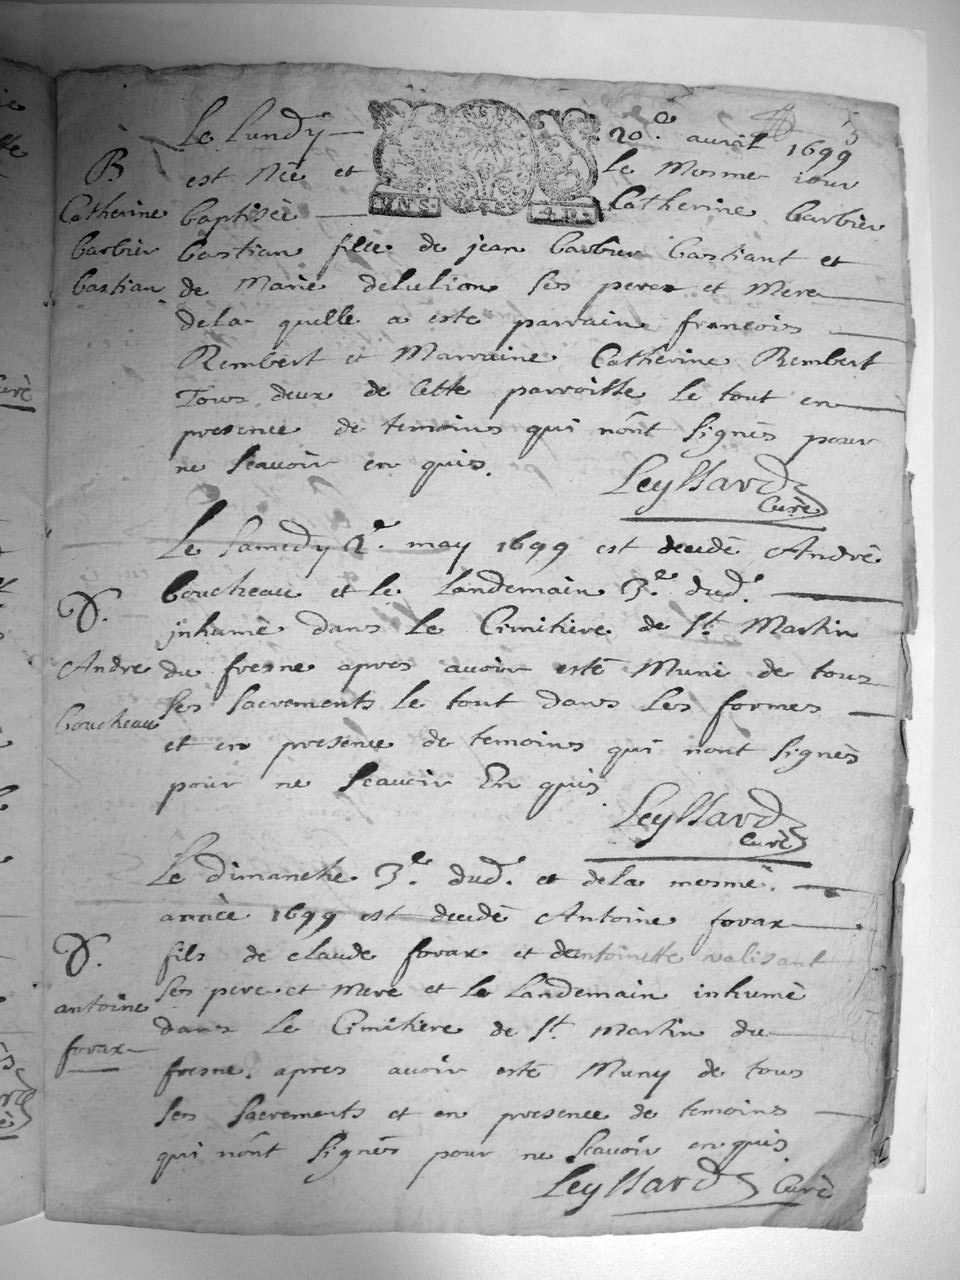 Le Lundy 20e. auril 1699
est Née et le Mesme iour
baptisée Catherine barbier
bastian fille de jean barbier bastiant et
de Marie delulion Ses perer et Mere
dela quelle a esté parrain francois
Rembert et Marraine Catherine Rembert
Tous deux de Cette parroisse le tout en
presence de temoins qui nont Signés pour
ne Scauoir en quis.
Leyssard
Curé
B
Catherine
barbier
bastian
Le Samedy 2e. may 1699 est decedé André
boucheau et le Landemain 3e. dud.
jnhumé dans Le Cimitiere de St. Martin
du fresne apres auoir esté Muni de tous
Ses Sacrements le tout dans Les formes
et en presence de temoins qui nont Signés
pour ne Scauoir En quis
Leyssard
Curé
D.
Andre
boucheau
Le dimanche 3e. dud. et dela mesme
année 1699 est decedé Antoine fovax
fils de claude fovax et dentoinette valisant
Ses pere et Mere et Le Landemain inhumé
dans Le Cimitiere de St. Martin du
fresne. apres auoir esté Muny de tous
Ses Sacrements et en presence de temoins
qui nont Signés pour ne Scauoir en quis
Leyssard Curé
D.
antoine
fovax